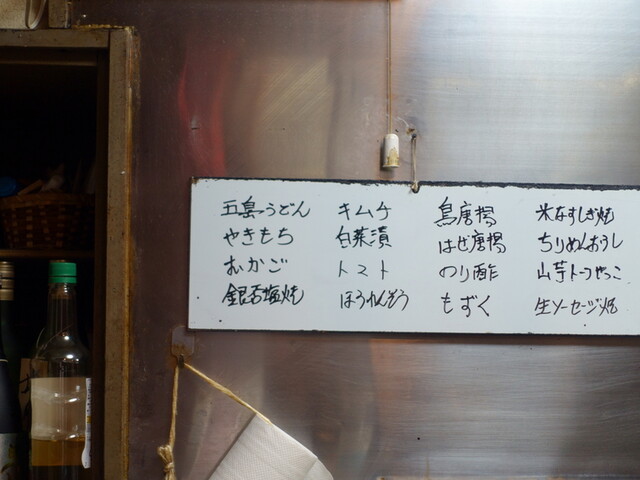 五島うどん
やきもち
むかご
銀杏塩焼
キムチ
白菜漬
トマト
ほうれんそう
鳥唐揚
はぜ唐揚
のり酢
もずく
米なすしぎ焼
ちりめんおろし
山芋トーフやっこ
生ソーセージ焼